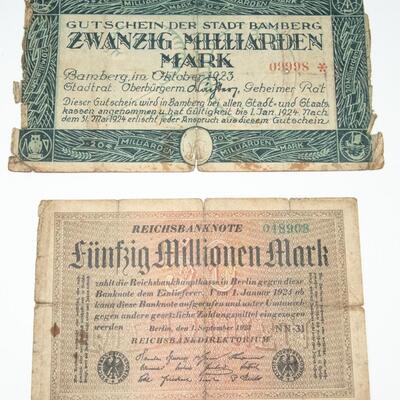 GUTSCHEIN DER STADT BAMBERG
ZWANZIG MILLIARDEN
MARK
09998 *
Bamberg, im Oktober 1923
Stadtrat. Oberbürgerm. Geheimer Rat
Dieser Gutschein wird in Bamberg bei allen Stadt- und Staats-
kassen angenommen u. hat Gültigkeit bis 1. Jan. 1924. Nach
dem 31. Mai 1924 erlischt jeder Anspruch aus diesem Gutschein
20 MILLIARDEN MILLIARDEN MARK
REICHSBANKNOTE
048908
Fünfzig Millionen Mark
zahlt die Reichsbankhauptkasse in Berlin gegen diese
Banknote dem Einlieferer. Vom 1. Januar 1924 ab
kann diese Banknote aufgerufen und unter Umtausch
gegen andere gesetzliche Zahlungsmittel eingezogen
werden Berlin, den 1. September 1923
NN-31
REICHSBANKDIREKTORIUM